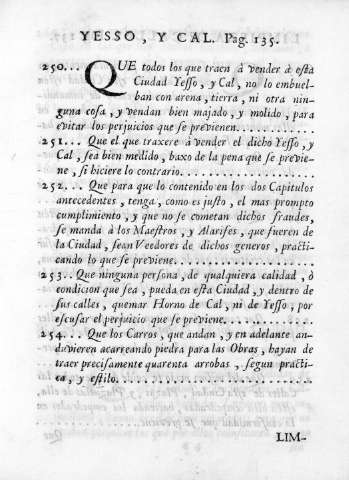 YESSO, Y CAL. Pag. 135.
250... QUE todos los que traen à vender à esta
Ciudad Yesso, y Cal, no lo embuel-
ban con arena, tierra, ni otra nin-
guna cosa, y vendan bien majado, y molido, para
evitar los perjuicios que se previenen...............
251... Que el que traxere à vender el dicho Yesso, y
Cal, sea bien medido, baxo de la pena que se previe-
ne, si hiciere lo contrario.......................
252... Que para que lo contenido en los dos Capitulos
antecedentes, tenga, como es justo, el mas prompto
cumplimiento, y que no se cometan dichos fraudes,
se manda à los Maestros, y Alarifes, que fueren de
la Ciudad, sean Veedores de dichos generos, practi-
cando lo que se previene.........................
253.. Que ninguna persona, de qualquiera calidad, ò
condicion que sea, pueda en esta Ciudad, y dentro de
sus calles, quemar Horno de Cal, ni de Yesso, por
escusar el perjuicio que se previene...............
254... Que los Carros, que andan, y en adelante an-
duvieren acarreando piedra para las Obras, hayan de
traer precisamente quarenta arrobas, segun practi-
ca, y estilo.................................
LIM-